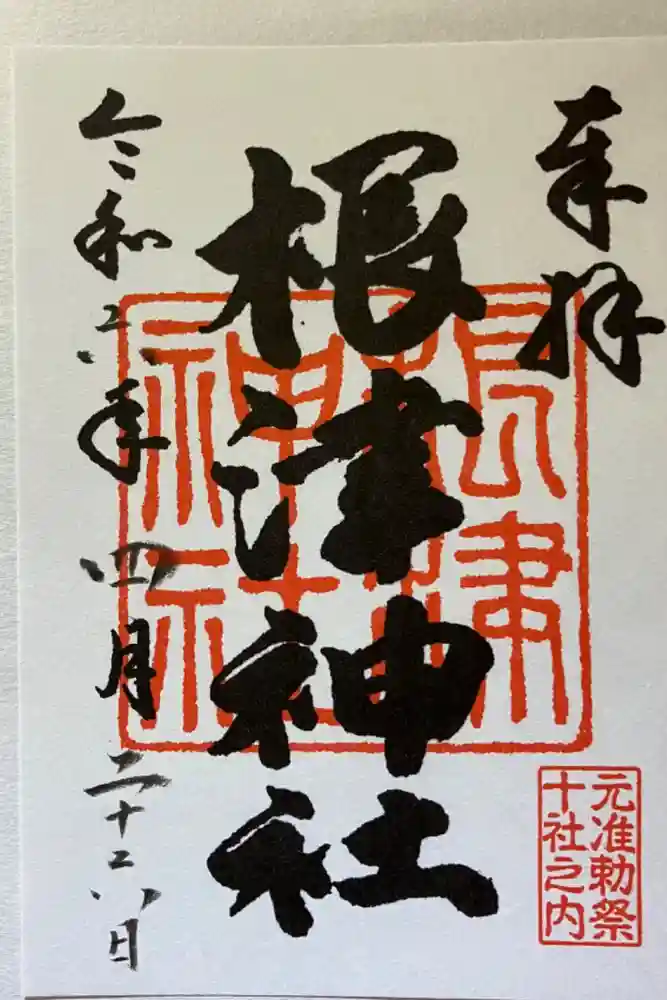 奉拝
根津神社
根津
神社
令和六年四月二十六日
元准勅祭
十社之内